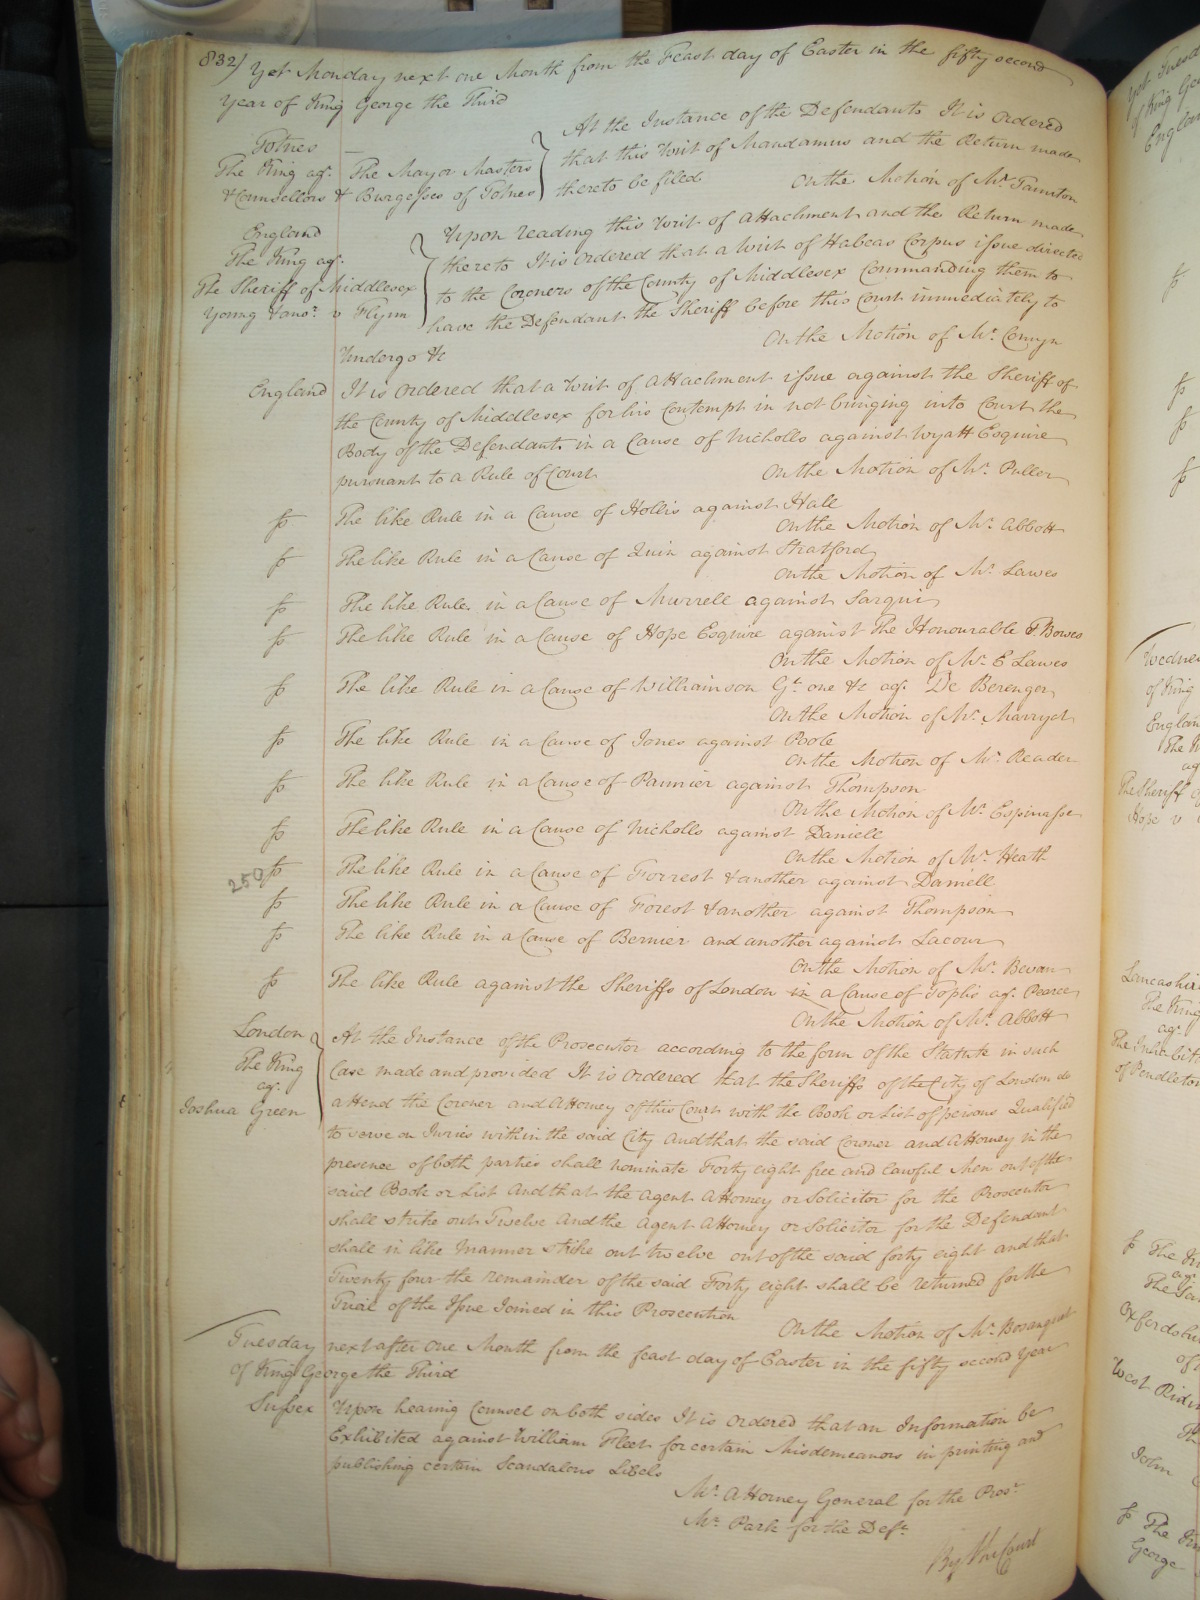 832) Yet Monday next one Month from the Feast day of Easter in the fifty second
Year of King George the Third
Totnes
The King agt. The Mayor Masters
& Counsellors & Burgesses of Totnes
At the Instance of the Defendants It is ordered
that this Writ of Mandamus and the Return made
thereto be filed
On the Motion of Mr. Taunton
England
The King agt.
The Sheriff of Middlesex
Young & anor. v Flynn
Upon reading this Writ of Attachment and the Return made
thereto It is ordered that a Writ of Habeas Corpus issue directed
to the Coroners of the County of Middlesex Commanding them to
have the Defendant the Sheriff before this Court immediately to
undergo &c
On the Motion of Mr. Comyn
England It is ordered that a Writ of Attachment issue against the Sheriff of
the County of Middlesex for his Contempt in not bringing into Court the
Body of the Defendant in a Cause of Nicholls against Wyatt Esquire
pursuant to a Rule of Court
On the Motion of Mr. Puller
fo The like Rule in a Cause of Hollis against Hall
On the Motion of Mr. Abbott
fo The like Rule in a Cause of Quin against Stratford
On the Motion of Mr. Lawes
fo The like Rule in a Cause of Murrell against Sarqui
fo The like Rule in a Cause of Hope Esquire against The Honourable T. Bowes
On the Motion of Mr. E Lawes
fo The like Rule in a Cause of Williamson Gt. one &c agt. De Berenger
On the Motion of Mr. Marryat
fo The like Rule in a Cause of Jones against Poole
On the Motion of Mr. Reader
fo The like Rule in a Cause of Pannier against Thompson
On the Motion of Mr. Espinasse
fo The like Rule in a Cause of Nicholls against Daniell
On the Motion of Mr. Heath
250 fo The like Rule in a Cause of Forrest & another against Daniell
fo The like Rule in a Cause of Forest & another against Thompson
fo The like Rule in a Cause of Bernier and another against Lacour
On the Motion of Mr. Bevan
fo The like Rule against the Sheriffs of London in a Cause of Toplis agt. Pearce
On the Motion of Mr. Abbott
London
The King
agt.
Joshua Green
At the Instance of the Prosecutor according to the form of the Statute in such
Case made and provided It is ordered that the Sheriffs of the City of London do
attend the Coroner and Attorney of this Court with the Book or List of persons Qualified
to serve on Juries within the said City and that the said Coroner and Attorney in the
presence of both parties shall nominate Forty eight free and lawful Men out of the
said Book or List And that the agent Attorney or Solicitor for the Prosecutor
shall strike out Twelve And the Agent Attorney or Solicitor for the Defendant
shall in like Manner strike out twelve out of the said forty eight and that
Twenty four the remainder of the said Forty eight shall be returned for the
Trial of the Issue Joined in this Prosecution
On the Motion of Mr. Bosanquet
Tuesday next after one Month from the feast day of Easter in the fifty second Year
of King George the Third
Sussex Upon hearing Counsel on both sides It is ordered that an Information be
Exhibited against William Fleet for certain Misdemeanors in printing and
publishing certain Scandalous Libels
Mr. Attorney General for the Prosr.
Mr. Park for the Deft.
By the Court